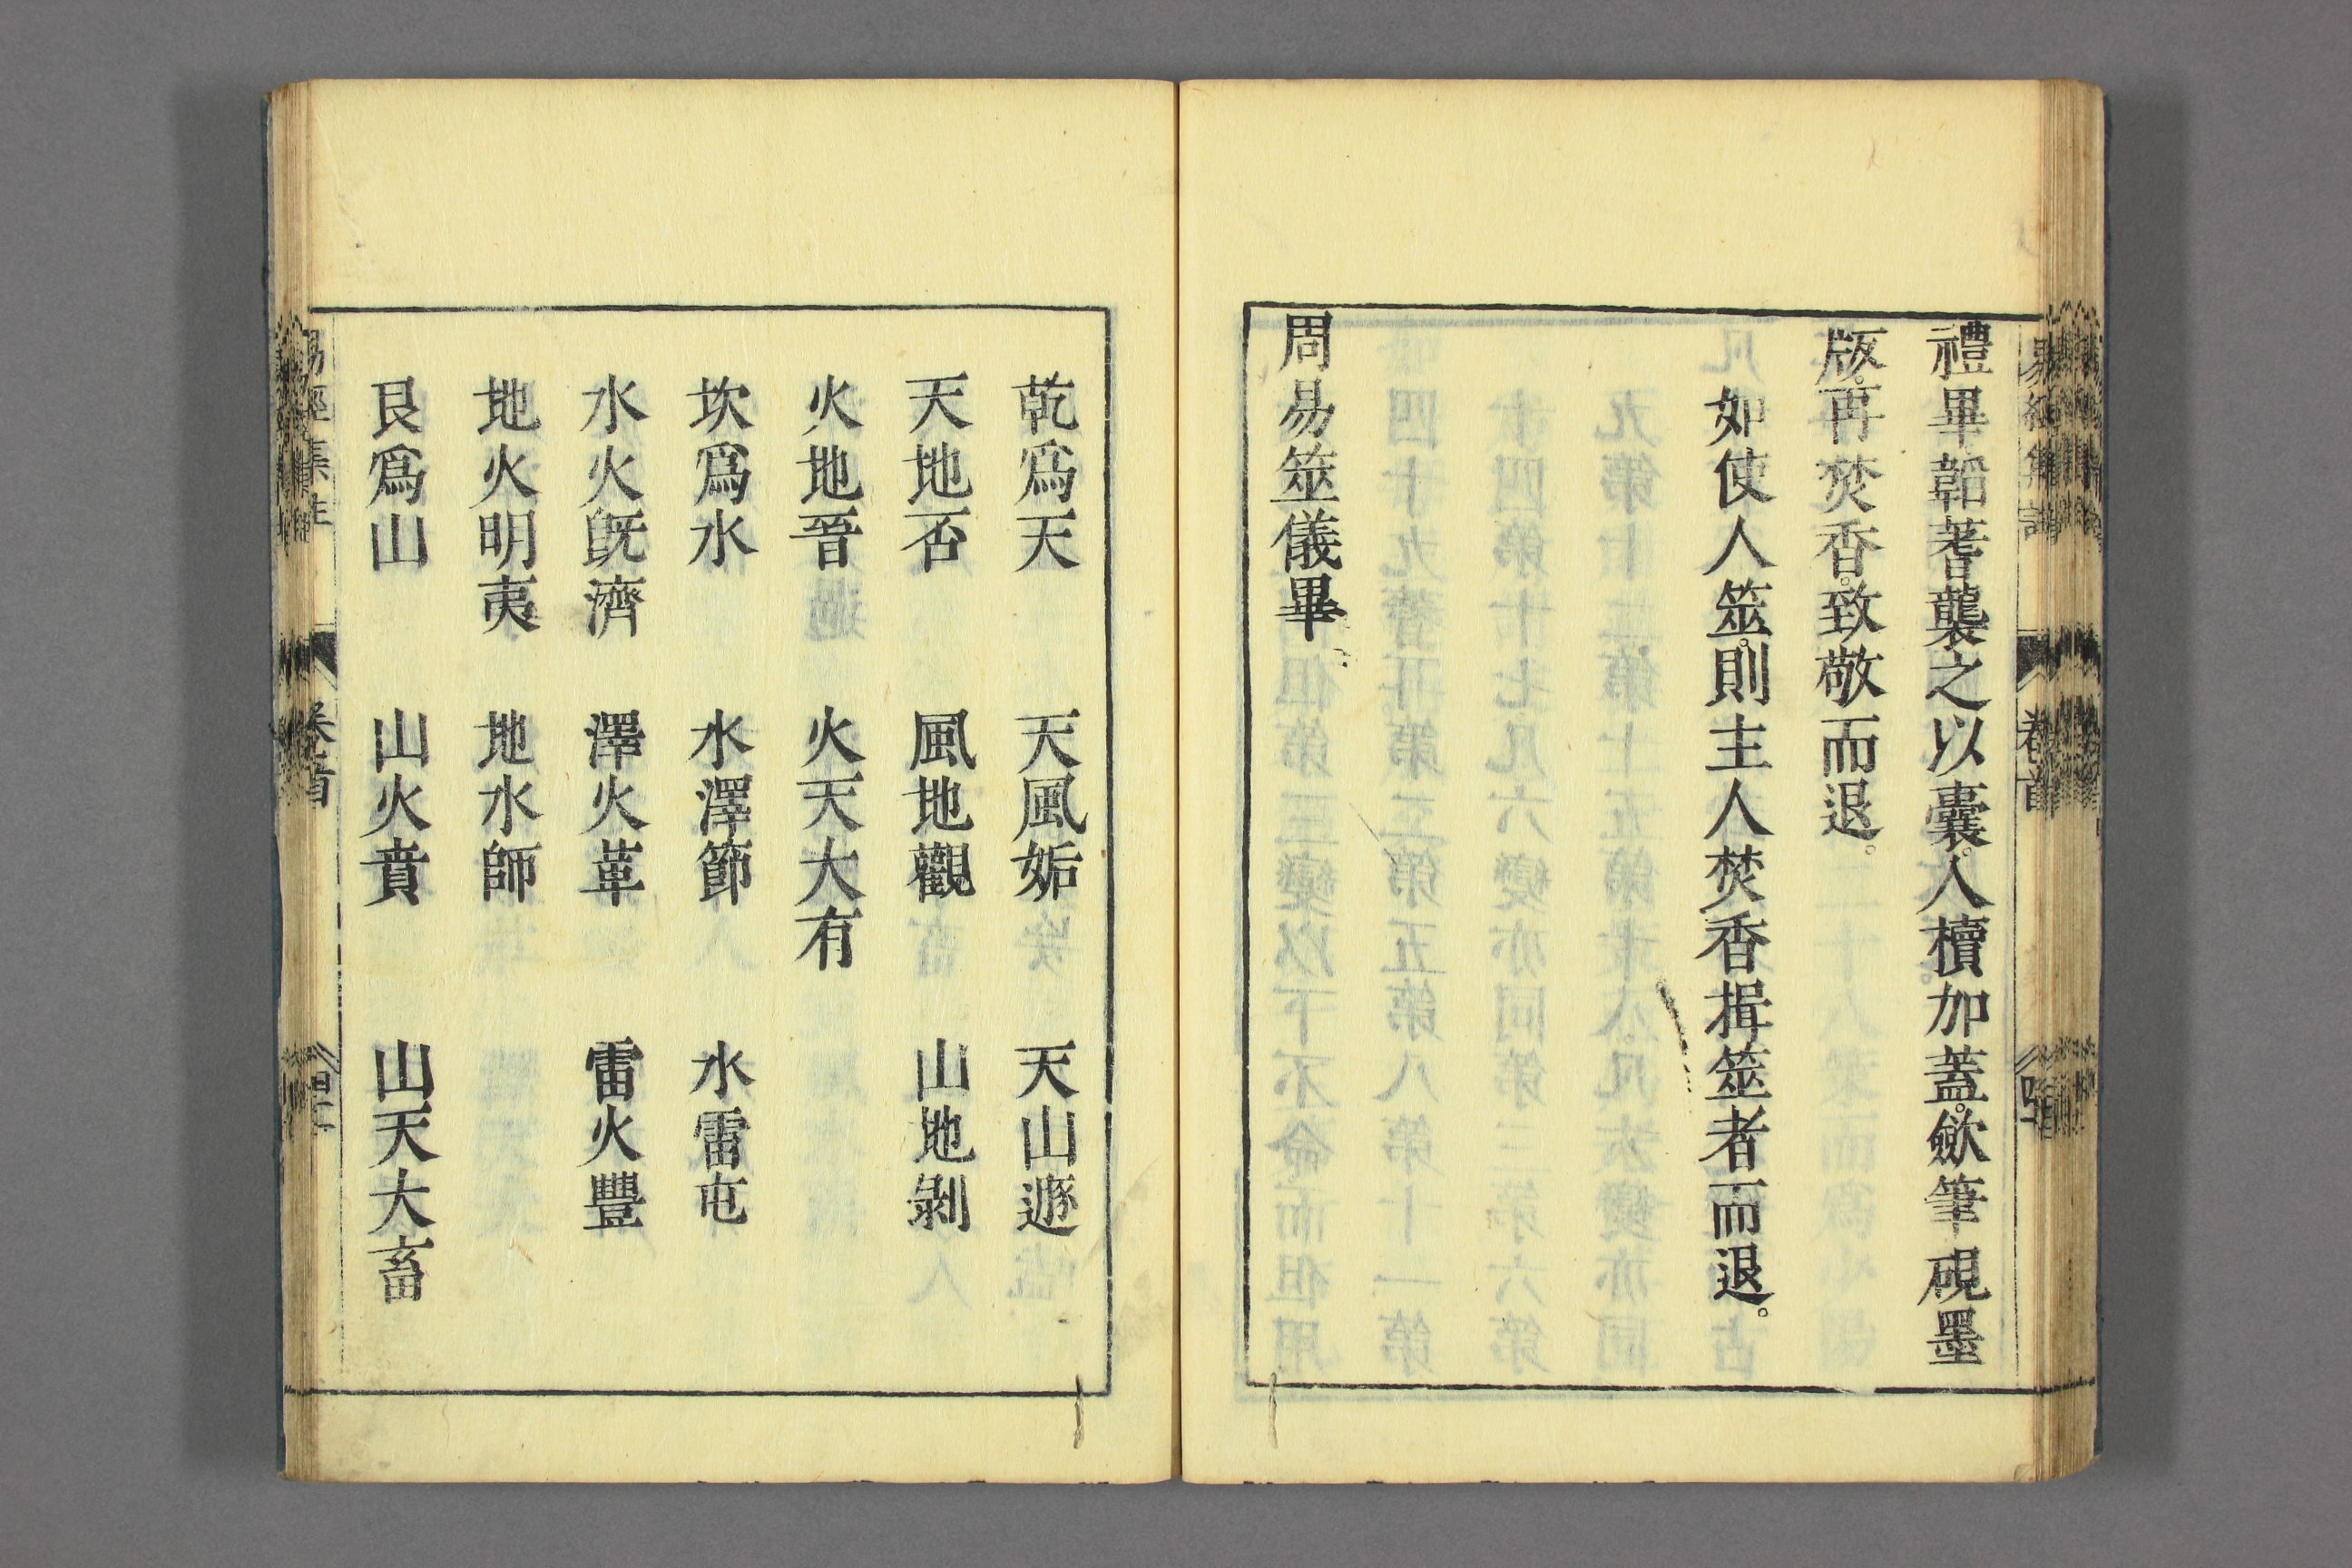 禮畢韜蓍襲之以囊。入櫝加蓋。斂筆硯墨
版。再焚香。致敬而退。
如使人筮。則主人焚香揖筮者而退。
周易筮儀畢
乾爲天　天風姤　天山遯
天地否　風地觀　山地剝
火地晉　火天大有
坎爲水　水澤節　水雷屯
水火旣濟　澤火革　雷火豐
地火明夷　地水師
艮爲山　山火賁　山天大畜
卷首